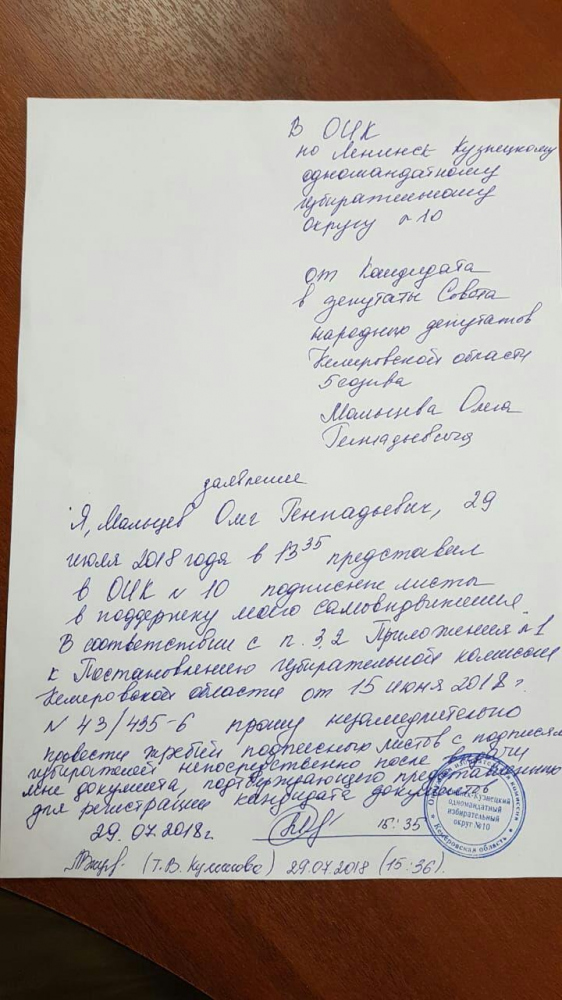 В ОИК
по Ленинск Кузнецкому
одномандатному
избирательному
округу №10
от Кандидата
в депутаты Совета
народных депутатов
Кемеровской области
5 созыва
Мальцева Олега
Геннадьевича
заявление
Я, Мальцев Олег Геннадьевич, 29
июля 2018 года в 13 35 представил
в ОИК № 10 подписные листы
в поддержку моего самовыдвижения.
В соответствии с п. 3,2 Приложения №1
к Постановлению избирательной комиссии
Кемеровской области от 15 июня 2018 г.
№ 43/435-6 прошу незамедлительно
провести жребий подписного листов с подписями
избирателей непосредственно после выдачи
мне документа, подтверждающего представление
для регистрации кандидата документов
29.07.2018г. 15:35
(Т.В. Кулакова) 29.07.2018 (15:36).
Кузнецкий
одномандатный
избирательный
округ №10
Кемеровская область